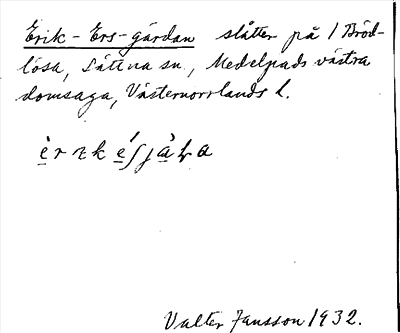 Erik-Ers-gärdan slåtter på 1 Bröd-
lösa, Sättna sn, Medelpads västra
domsaga, Västernorrlands l.
Valter Jansson 1932.